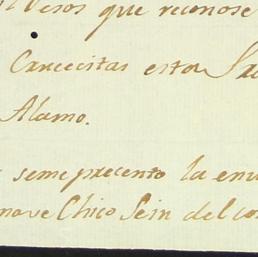 Pesos que reconose
Carcecitas estos
Alamo.
seme precento la
Chico Sein del